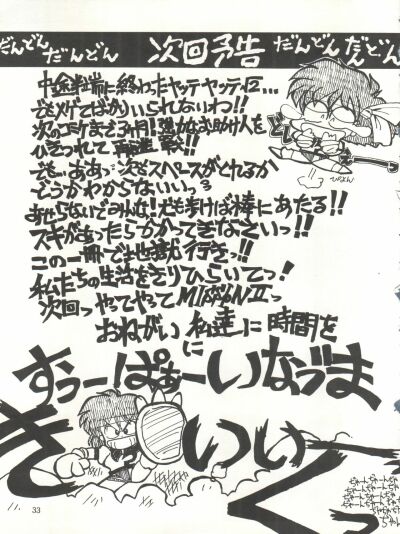 だんどん だんどん 次回予告 だんどん だんどん
中途半端に終わったヤッテヤッテ征…
でもメゲてばかりいられないわ!!
次のコミケまで3ヶ月!強力なお助け人を
ひきつれて再進撃!!
でも…ああっ次もスペースがとれるか
どうかわからないいっ
あせらないでみんな!犬も歩けば棒にあたる!!
スキがあったらかかってきなさいっ!!
この一冊で地獄行きっ!!
私たちの生活をきりひらいてっ!
次回っやってやって MISSION Ⅱっ
おねがい 私達に時間を
に
どしぇー
ぴょよん
すぅーぱぁーいなづま
きいぃーくっ
ちゃーんちゃーちゃ
33